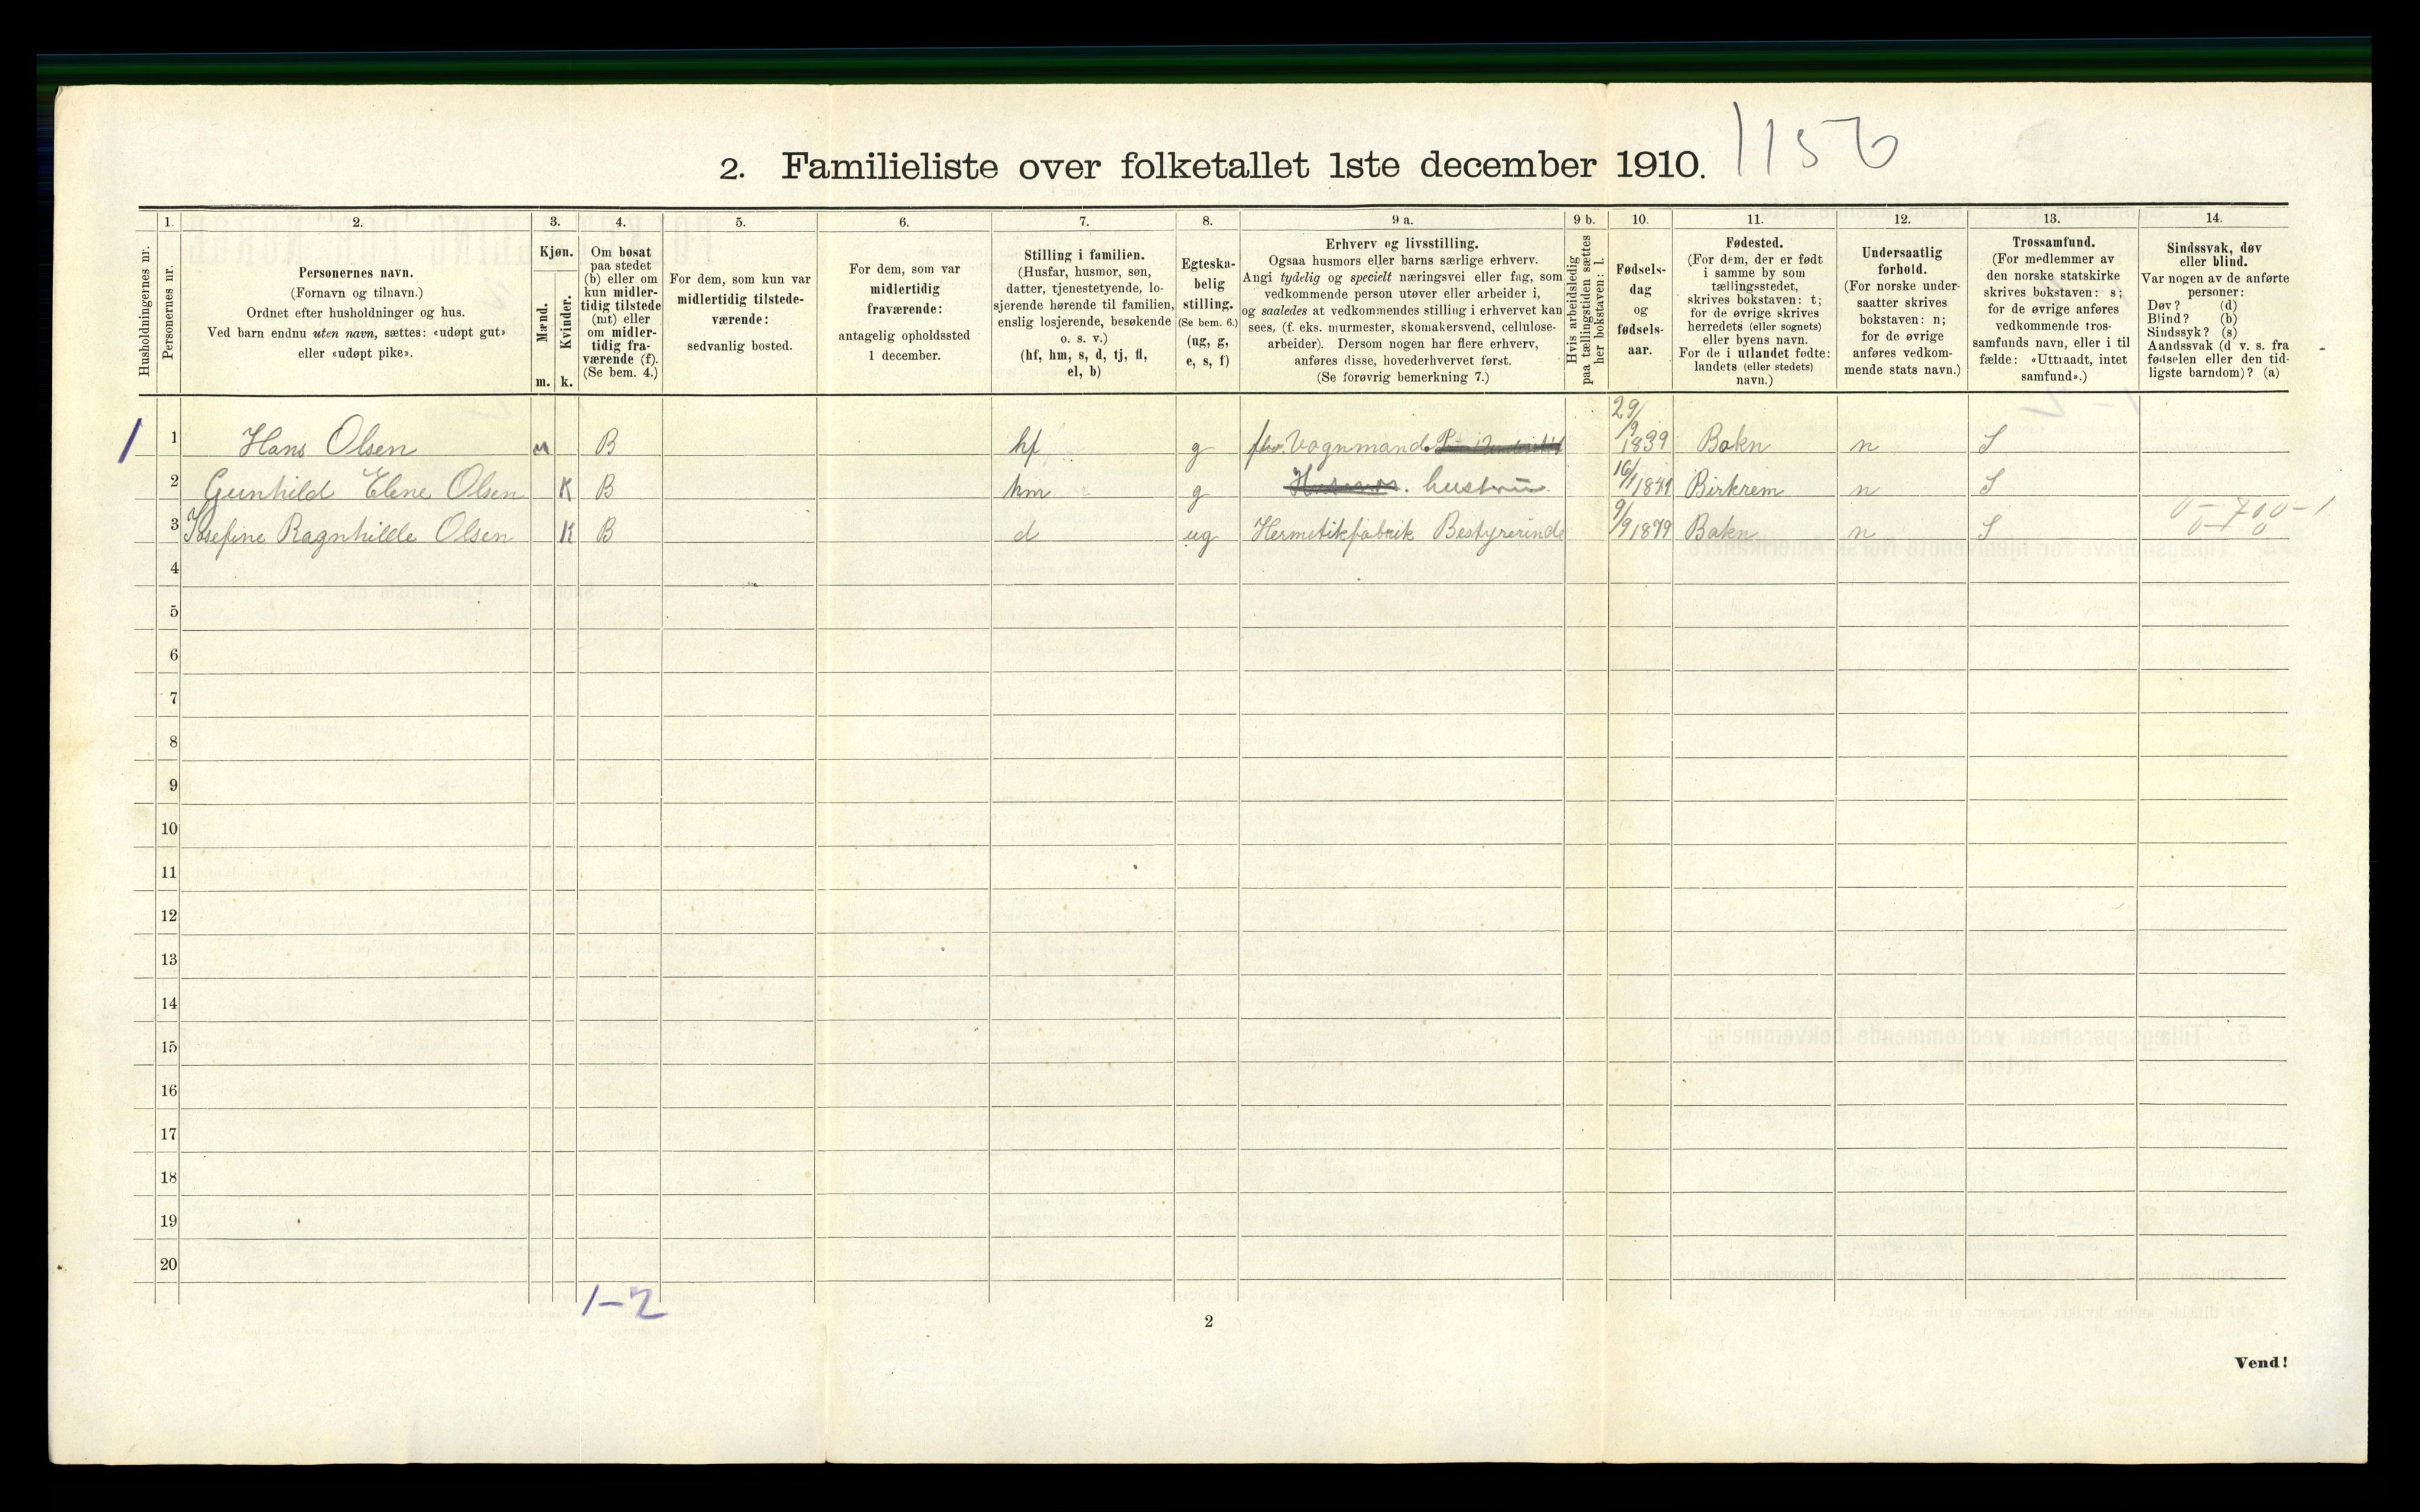 1156
2. Familieliste over folketallet 1ste december 1910.
Husholdningernes nr.
1.
Personernes nr.
2.
Personernes navn.
(Fornavn og tilnavn.)
Ordnet efter husholdninger og hus.
Ved barn endnu uten navn, sættes: «udøpt gut»
eller «udøpt pike».
3.
Kjøn.
Mænd.
m.
Kvinder.
k.
4.
Om bosat
paa stedet
(b) eller om
kun midler-
tidig tilstede
(mt) eller
om midler-
tidig fra-
værende (f).
(Se bem. 4.)
5.
For dem, som kun var
midlertidig tilstede-
værende:
sedvanlig bosted.
6.
For dem, som var
midlertidig
fraværende:
antagelig opholdssted
1 december.
7.
Stilling i familien.
(Husfar, husmor, søn,
datter, tjenestetyende, lo-
sjerende hørende til familien,
enslig losjerende, besøkende
o. s. v.)
(hf, hm, s, d, tj, fl,
el, b)
8.
Egteska-
belig
stilling.
(Se bem. 6.)
(ug, g,
e, s, f)
9 a.
Erhverv og livsstilling.
Ogsaa husmors eller barns særlige erhverv.
Angi tydelig og specielt næringsvei eller fag, som
vedkommende person utøver eller arbeider i,
og saaledes at vedkommendes stilling i erhvervet kan
sees, (f. eks. murmester, skomakersvend, cellulose-
arbeider). Dersom nogen har flere erhverv,
anføres disse, hovederhvervet først.
(Se forøvrig bemerkning 7.)
9 b.
Hvis arbeidsledig
paa tællingstiden sættes
her bokstaven: l.
10.
Fødsels-
dag
og
fødsels-
aar.
11.
Fødested.
(For dem, der er født
i samme by som
tællingsstedet,
skrives bokstaven: t;
for de øvrige skrives
herredets (eller sognets)
eller byens navn.
For de i utlandet fødte:
landets (eller stedets)
navn.)
12.
Undersaatlig
forhold.
(For norske under-
saatter skrives
bokstaven: n;
for de øvrige
anføres vedkom-
mende stats navn.)
13.
Trossamfund.
(For medlemmer av
den norske statskirke
skrives bokstaven: s;
for de øvrige anføres
vedkommende tros-
samfunds navn, eller i til
fælde: «Uttraadt, intet
samfund».)
14.
Sindssvak, døv
eller blind.
Var nogen av de anførte
personer:
Døv? (d)
Blind? (b)
Sindssyk? (s)
Aandssvak (d v. s. fra
fødselen eller den tid-
ligste barndom)? (a)
1 1 Hans Olsen m B hf g Vognmand 29/9 1839 Bokn n S
2 Gunhild Elene Olsen K B hm g hustru. 16/1 1841 Birkrem n S
3 Josefine Ragnhilde Olsen K B d ug Hermetikfabrik Bestyrerinde 9/9 1879 Bokn n S
0-700-1
0-1 0
4
5
6
7
8
9
10
11
12
13
14
15
16
17
18
19
20
1-2
2
Vend!